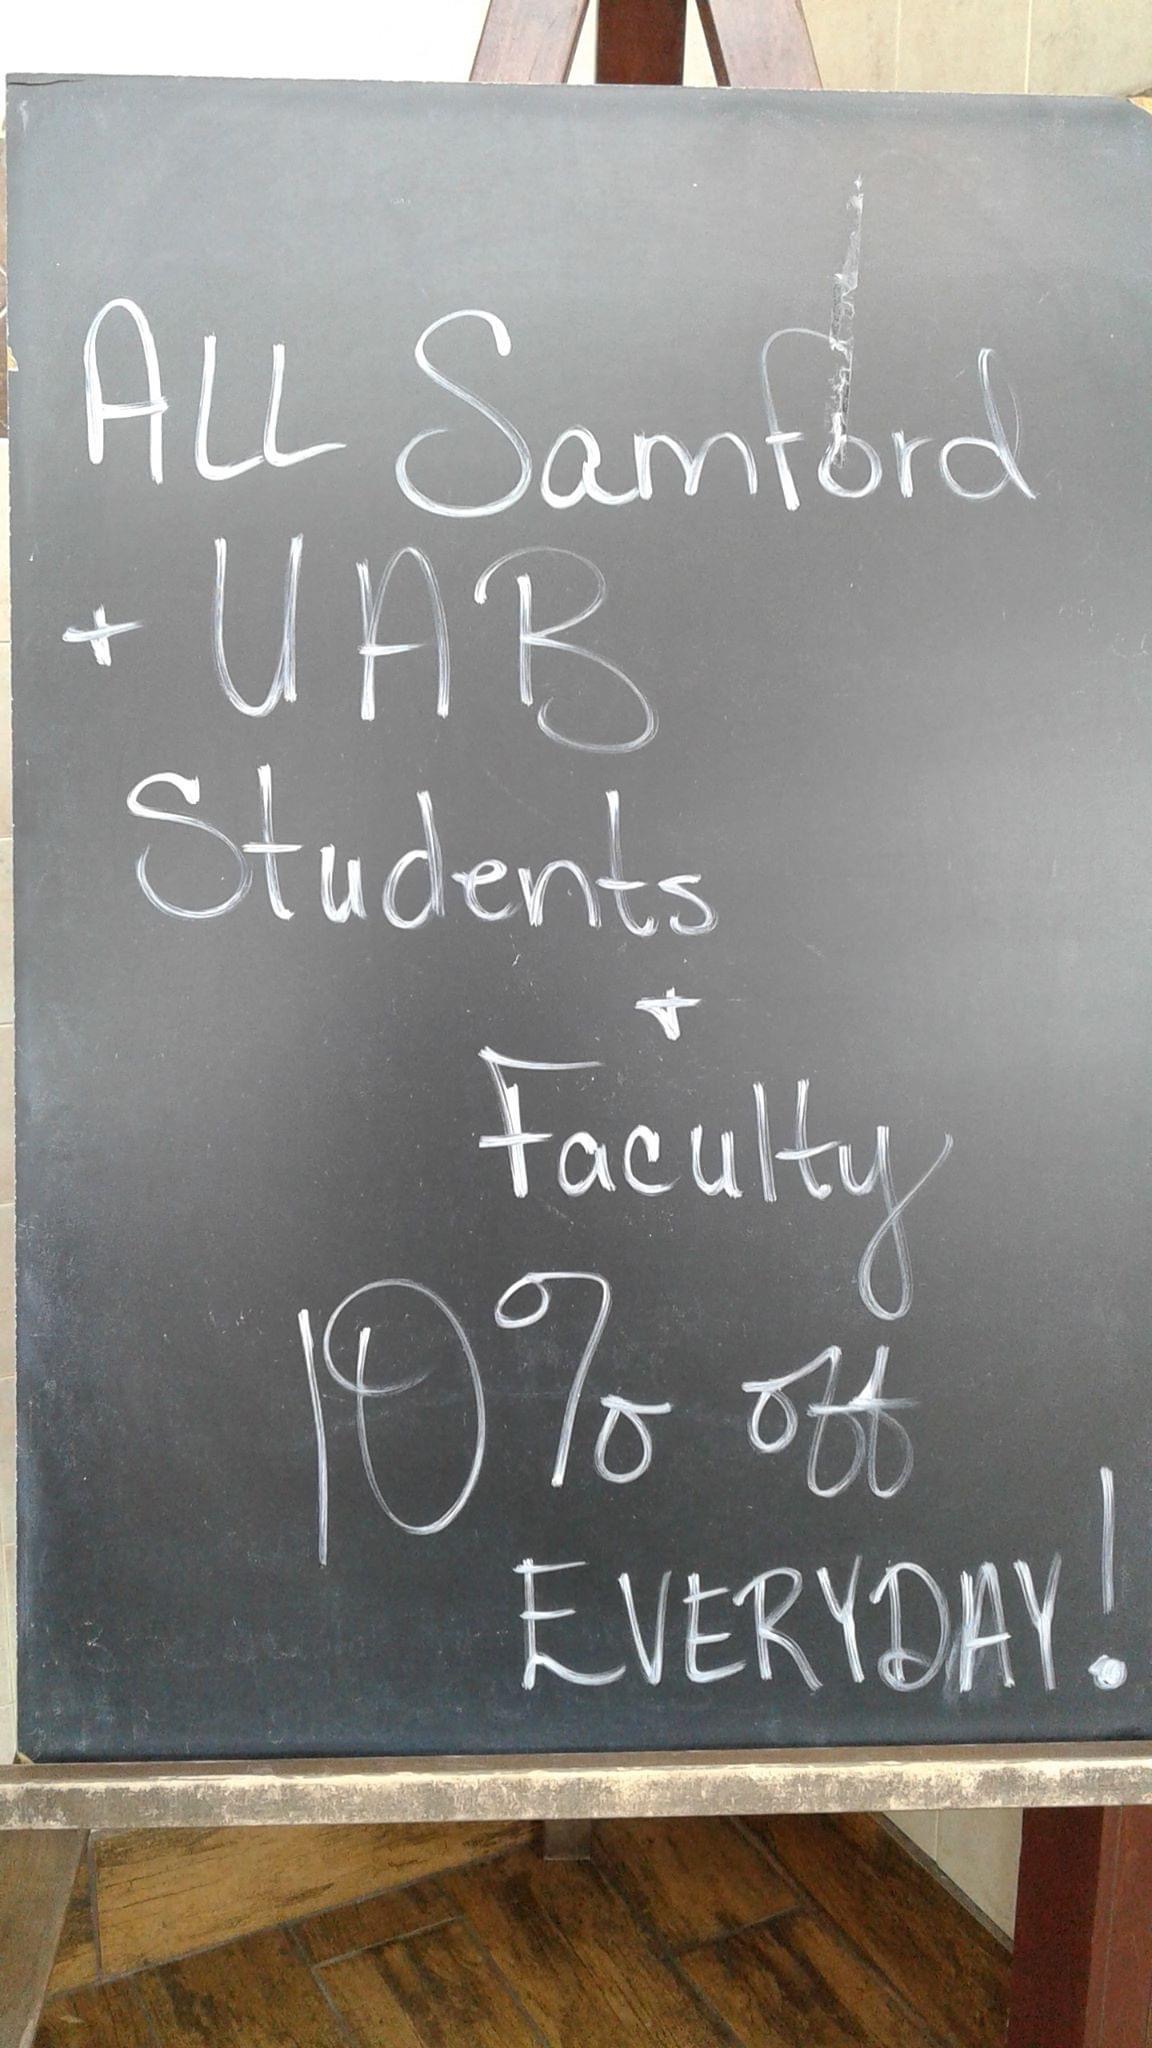 ALL Samford
+ UAB
Students
+
Faculty
10% off
EVERYDAY!